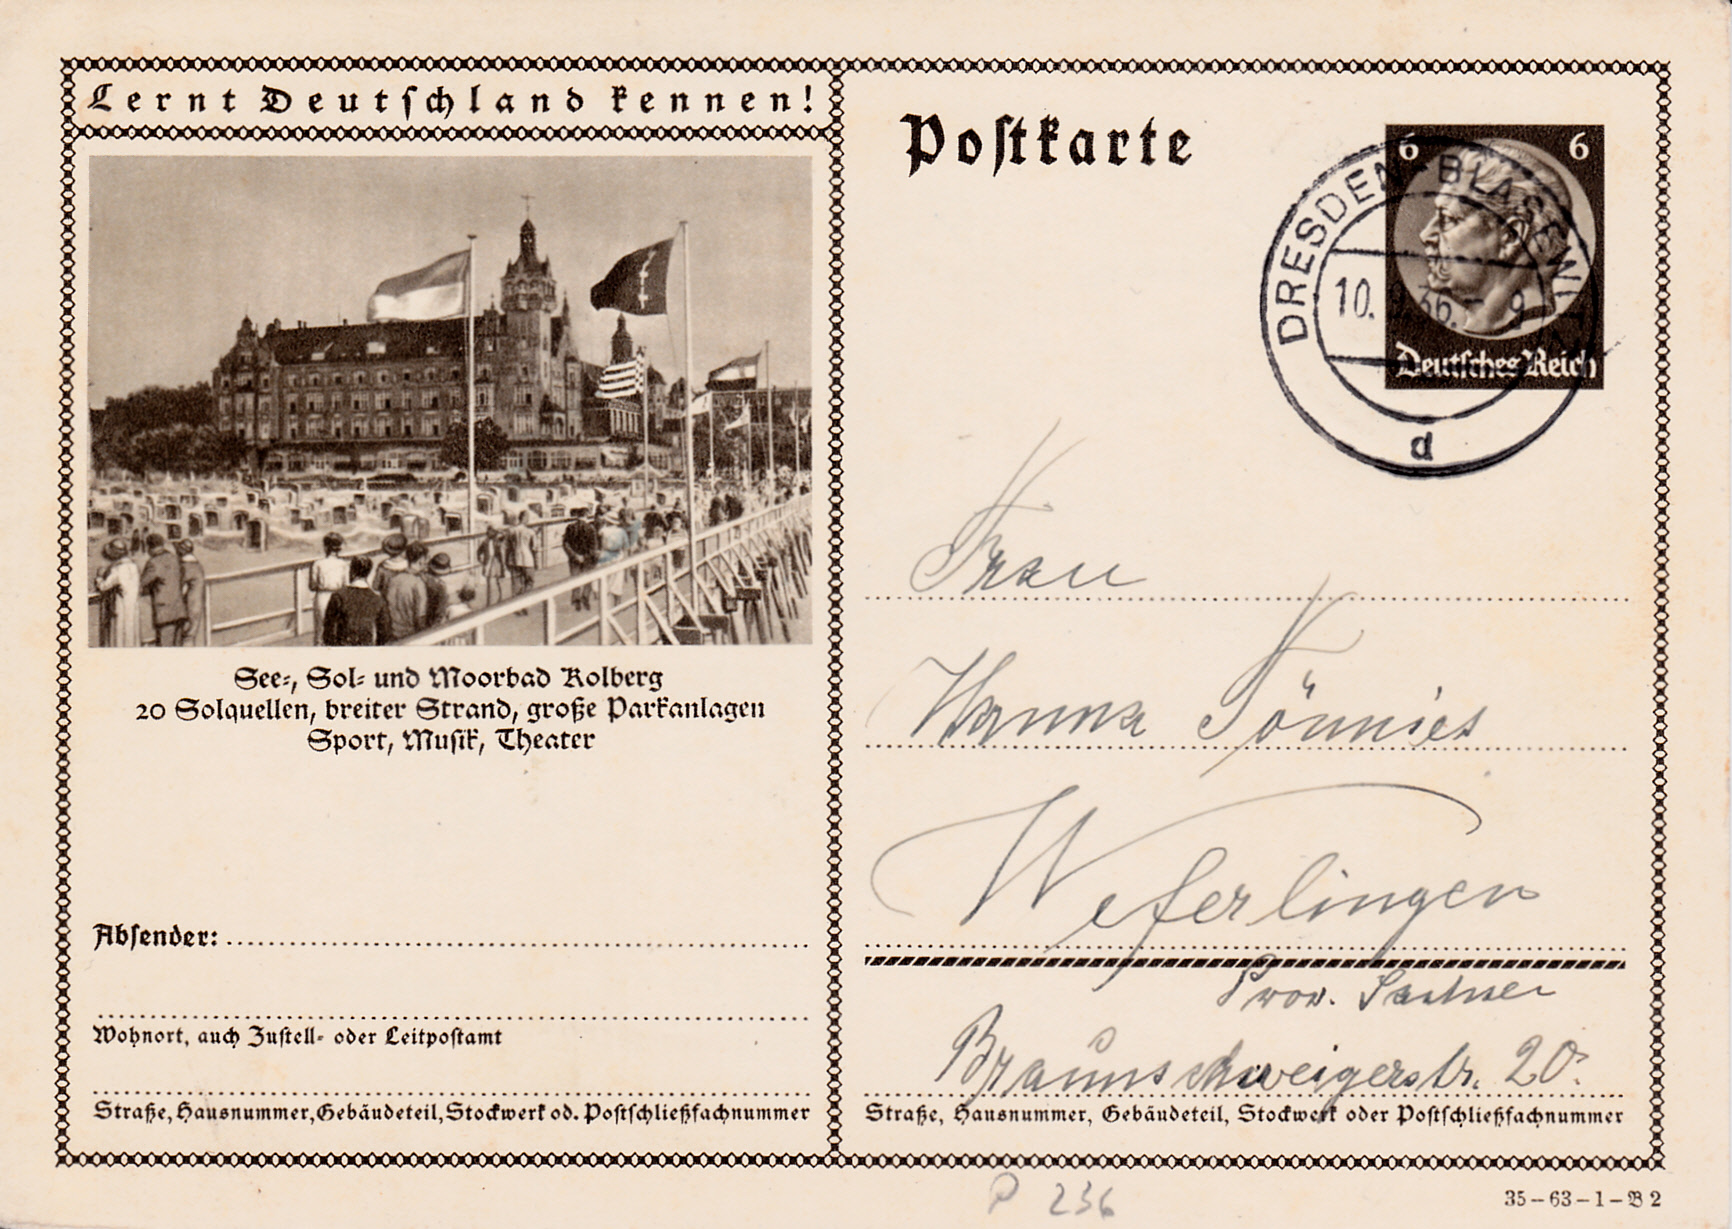 Lernt Deutschland kennen!
See-, Sol- und Moorbad Kolberg
20 Solquellen, breiter Strand, große Parkanlagen
Sport, Musik, Theater
Absender:
Wohnort, auch Zustell- oder Leitpostamt
Straße, Hausnummer, Gebäudeteil, Stockwerk od. Postschließfachnummer
Postkarte
6 6
Deutsches Reich
DRESDEN-BLASEWITZ
10. 36. 9
d
Frau
Hanna Tönnies
Weferlingen
Prov. Sachsen
Braunschweigerstr. 20.
Straße, Hausnummer, Gebäudeteil, Stockwerk oder Postschließfachnummer
P 236
35-63-1-B 2